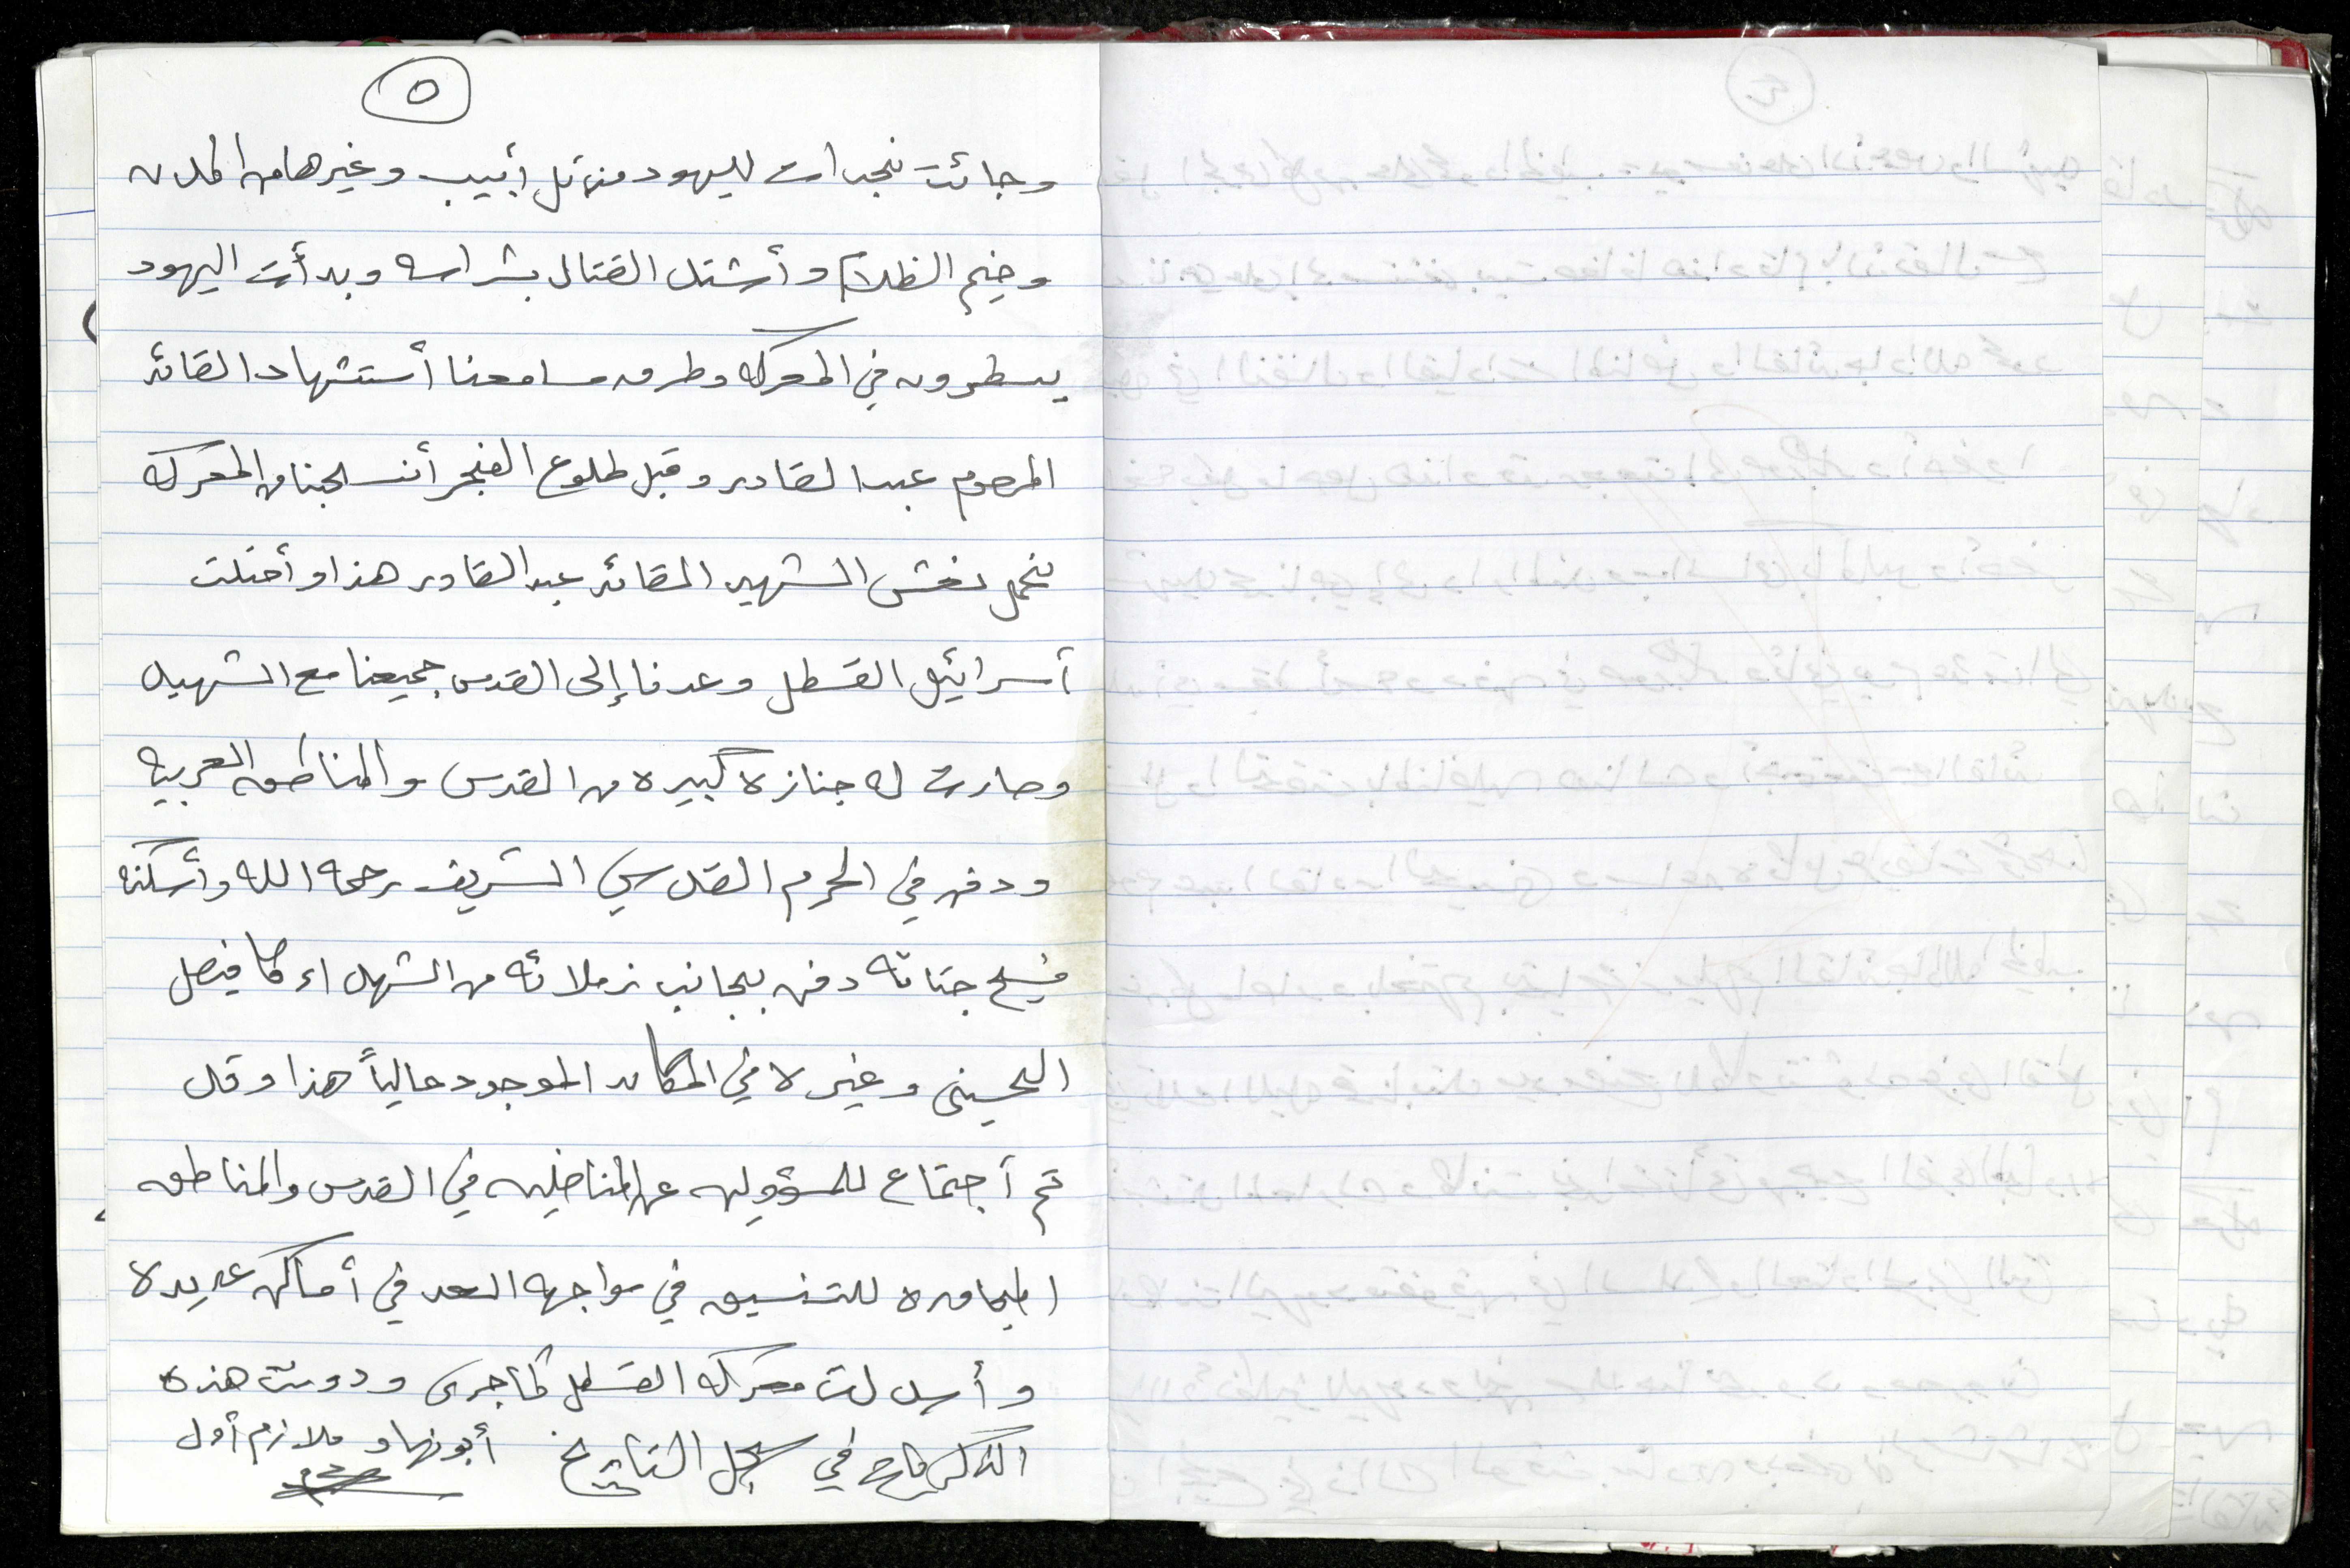 ٥
وجائت نجدات لليهود من تل أبيب وغيرها من المدن
وخيم الظلام وأشتد القتال بشراسه وبدأت اليهود
يسطرون في المعركه وطرق مسامعنا أستشهاد القائد
المرحوم عبد القادر وقبل طلوع الفجر أنسحبنا من المعركه
نحمل نعش الشهيد القائد عبد القادر هذا وأحتلت
أسرائيل القسطل وعدنا إلى القدس جميعنا مع الشهيد
وصارت له جنازه كبيره من القدس والمناطق العربيه
ودفن في الحرم القدسي الشريف رحمه الله وأسكنه
فسيح جناته دفن بجانب زملائه من الشهداء كا فيصل
الحسيني وغيره في المكان الموجود حالياً هذا وقد
تم أجتماع للمسؤولين عن المناضلين في القدس والمناطق
المجاوره للتنسيق في مواجهه العدو في أماكن عديده
وأسدلت معركه القسطل كما جرى ودونت هذه
الذكرى في سجل التاريخ أبو نهاد ملازم أول